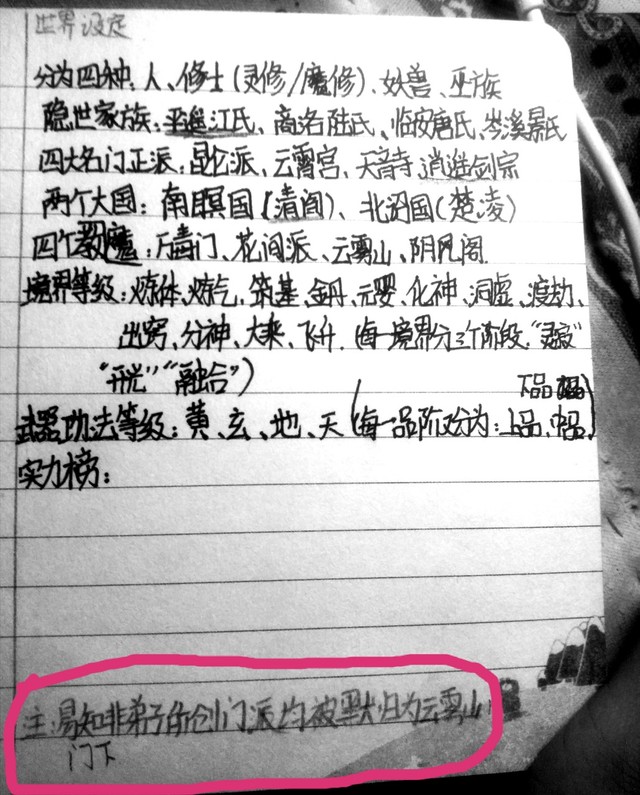 世界设定
分为四种:人、修士(灵修/魔修)、妖兽、巫族
隐世家族:平遥江氏、商洛陆氏、临安唐氏、岑溪景氏
四大名门正派:昆仑派、云霄宫、天音寺、逍遥剑宗
两个大国:南暝国(清阎)、北国(楚凌)
四个教魔:万毒门、花间派、云雾山、阴风阁
境界等级:炼体、炼气、筑基、金丹、元婴、化神、洞虚、渡劫、
出窍、分神、大乘、飞升.(每一境界分三个阶段,"灵寂"
"开光""融合")
下品
武器功法等级:黄、玄、地、天(每一品阶又分为:上品、中品、)
实力榜:
注:易知非弟子所创门派均被默归为云雾山
门下